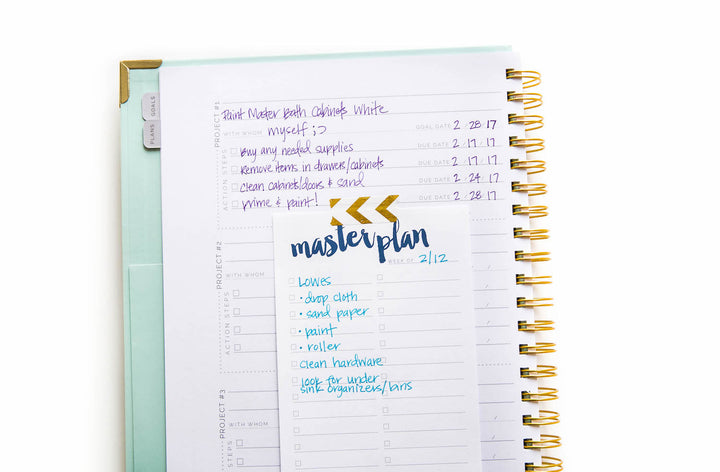 GOALS
PLANS
PROJECT #1
Paint Master Bath Cabinets White
WITH WHOM myself ;)
GOAL DATE 2 / 28 / 17
ACTION STEPS
Buy any needed supplies DUE DATE 2 / 17 / 17
Remove items in drawers/cabinets DUE DATE 2 / 17 / 17
Clean cabinets/doors & sand DUE DATE 2 / 24 / 17
Prime & paint! DUE DATE 2 / 28 / 17
PROJECT #2
WITH WHOM
ACTION STEPS
PROJECT #3
WITH WHOM
master plan
WEEK OF 2/12
Lowes
• drop cloth
• sand paper
• paint
• roller
clean hardware
look for under
sink organizers/bins